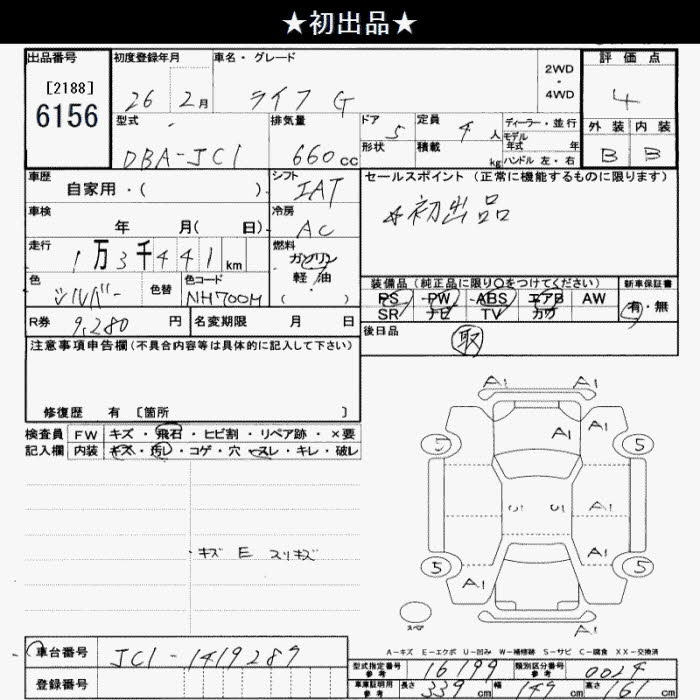 ★初出品★
出品番号 初度登録年月 車名・グレード 2WD・4WD 評価点
[2188]
6156
26 2月 ライフ G 4
型式 排気量 ドア 定員 ディーラー・並行 外装 内装
DBA-JC1 660cc 5 4人 モデル年式 年 B B
形状 積載 kg ハンドル 左・右
車歴 シフト セールスポイント (正常に機能するものに限ります)
自家用・( ) IAT
☆初出品
車検 冷房
年 月( 日) AC
走行 燃料
1万3千441km ガソリン
軽・油
( )
色 色替 色コード
シルバー NH700M
装備品 (純正品に限り〇をつけてください) 新車保証書
PS PW ABS エアB AW 有・無
SR ナビ TV カワ
R券 9,280円 名変期限 月 日
後日品 取
注意事項申告欄(不具合内容等は具体的に記入して下さい)
修復歴 有 [箇所 ]
検査員 FW キズ・飛石・ヒビ割・リペア跡・×要
記入欄 内装 キズ・汚レ・コゲ・穴・スレ・キレ・破レ
・キズ E スリキズ
A1 A1
A1 A1
5 5
U U A1
A1
5 5
A1
スペア A1
A-キズ E-エクボ U-凹み W-補修跡 S-サビ C-腐食 XX-交換済
車台番号 JC1-1419289
登録番号
型式指定番号 参考 16199 類別区分番号 参考 0024
車庫証明用 参考 長さ 339cm 幅 149cm 高さ 161cm